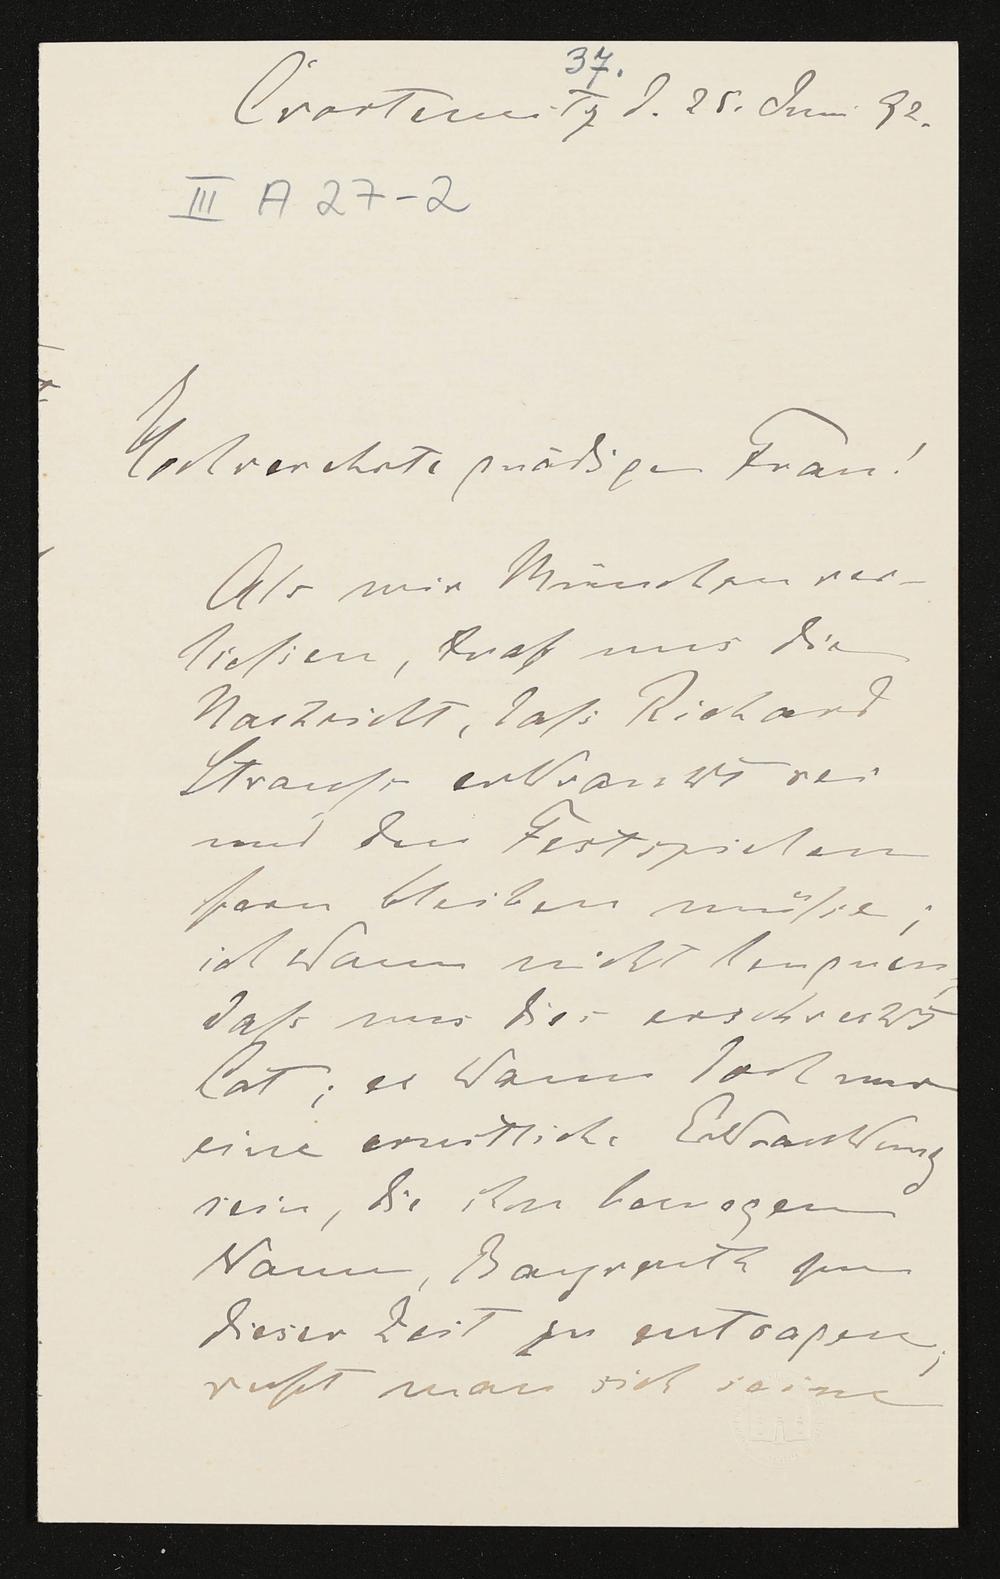 37.
Crostewitz d. 25. Juni 92.
III A 27-2
Hochverehrte gnädige Frau!
Als wir München ver-
ließen, traf uns die
Nachricht, daß Richard
Strauß erkrankt sei
und den Festspielen
fern bleiben müße;
ich kann nicht leugnen,
daß uns dies erschreckt
hat; es kann doch nur
eine ernstliche Erkrankung
sein, die ihn bewogen
kann, Bayreuth zu
dieser Zeit zu entsagen;
weßt man sich seine